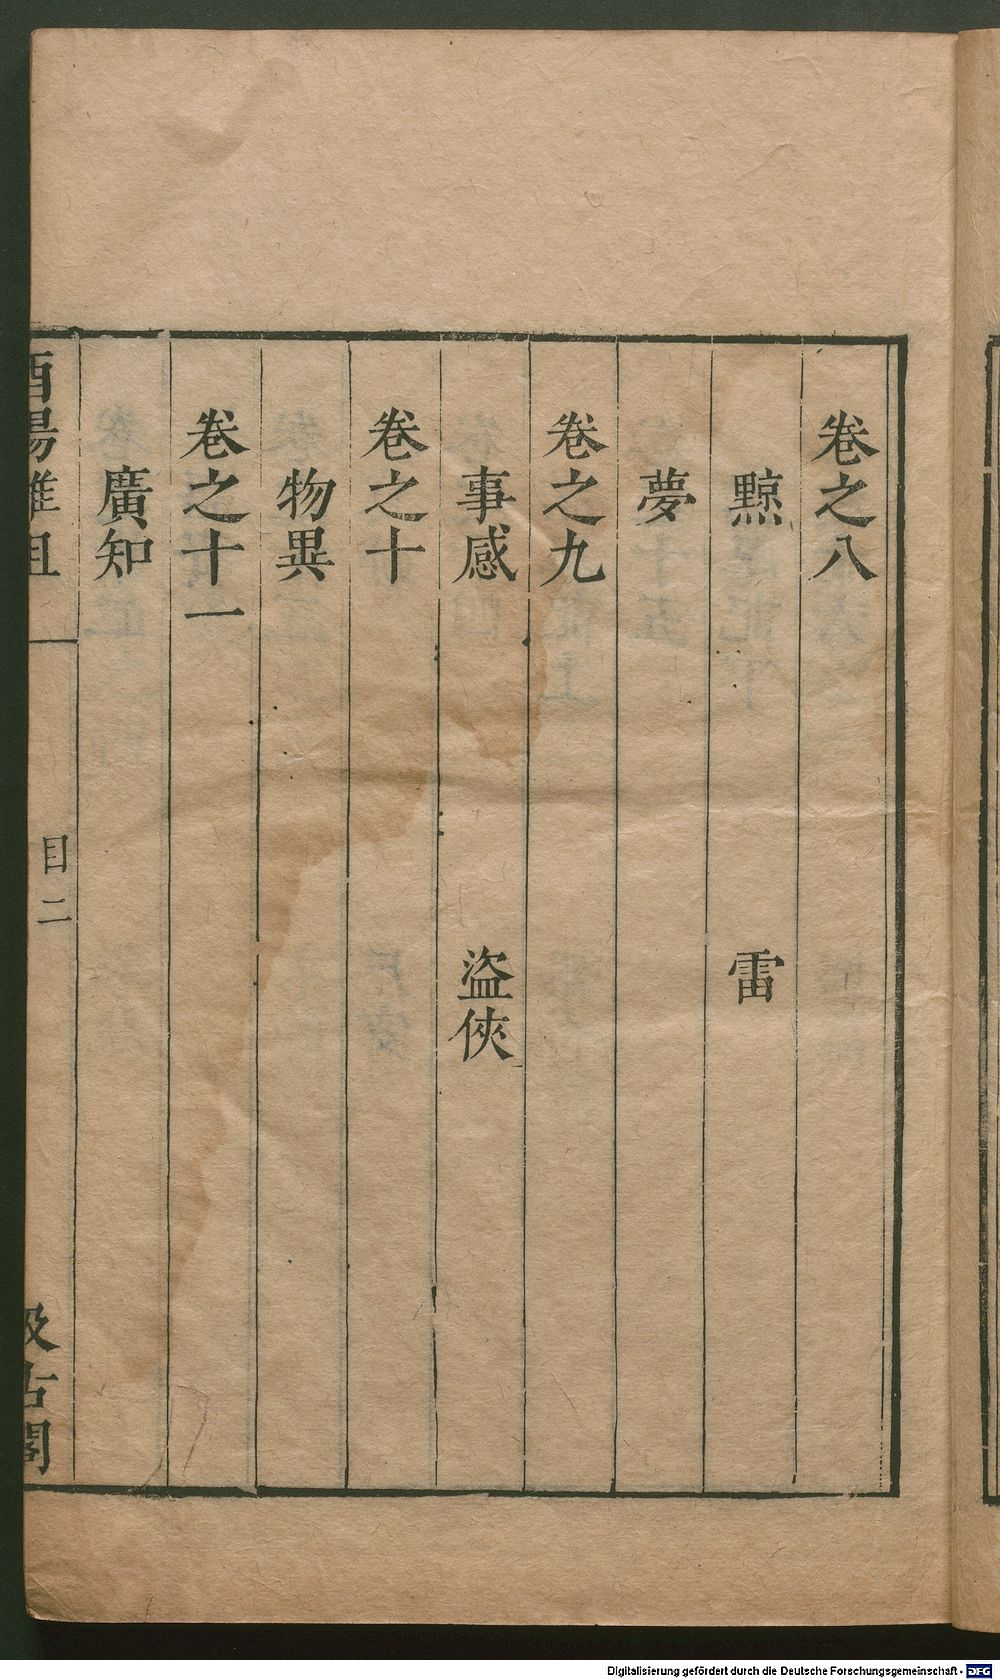 卷之八
黥 雷
夢
卷之九
事感 盜俠
卷之十
物異
卷之十一
廣知
酉陽雜俎 目二 汲古閣
Digitalisierung gefördert durch die Deutsche Forschungsgemeinschaft - DFG